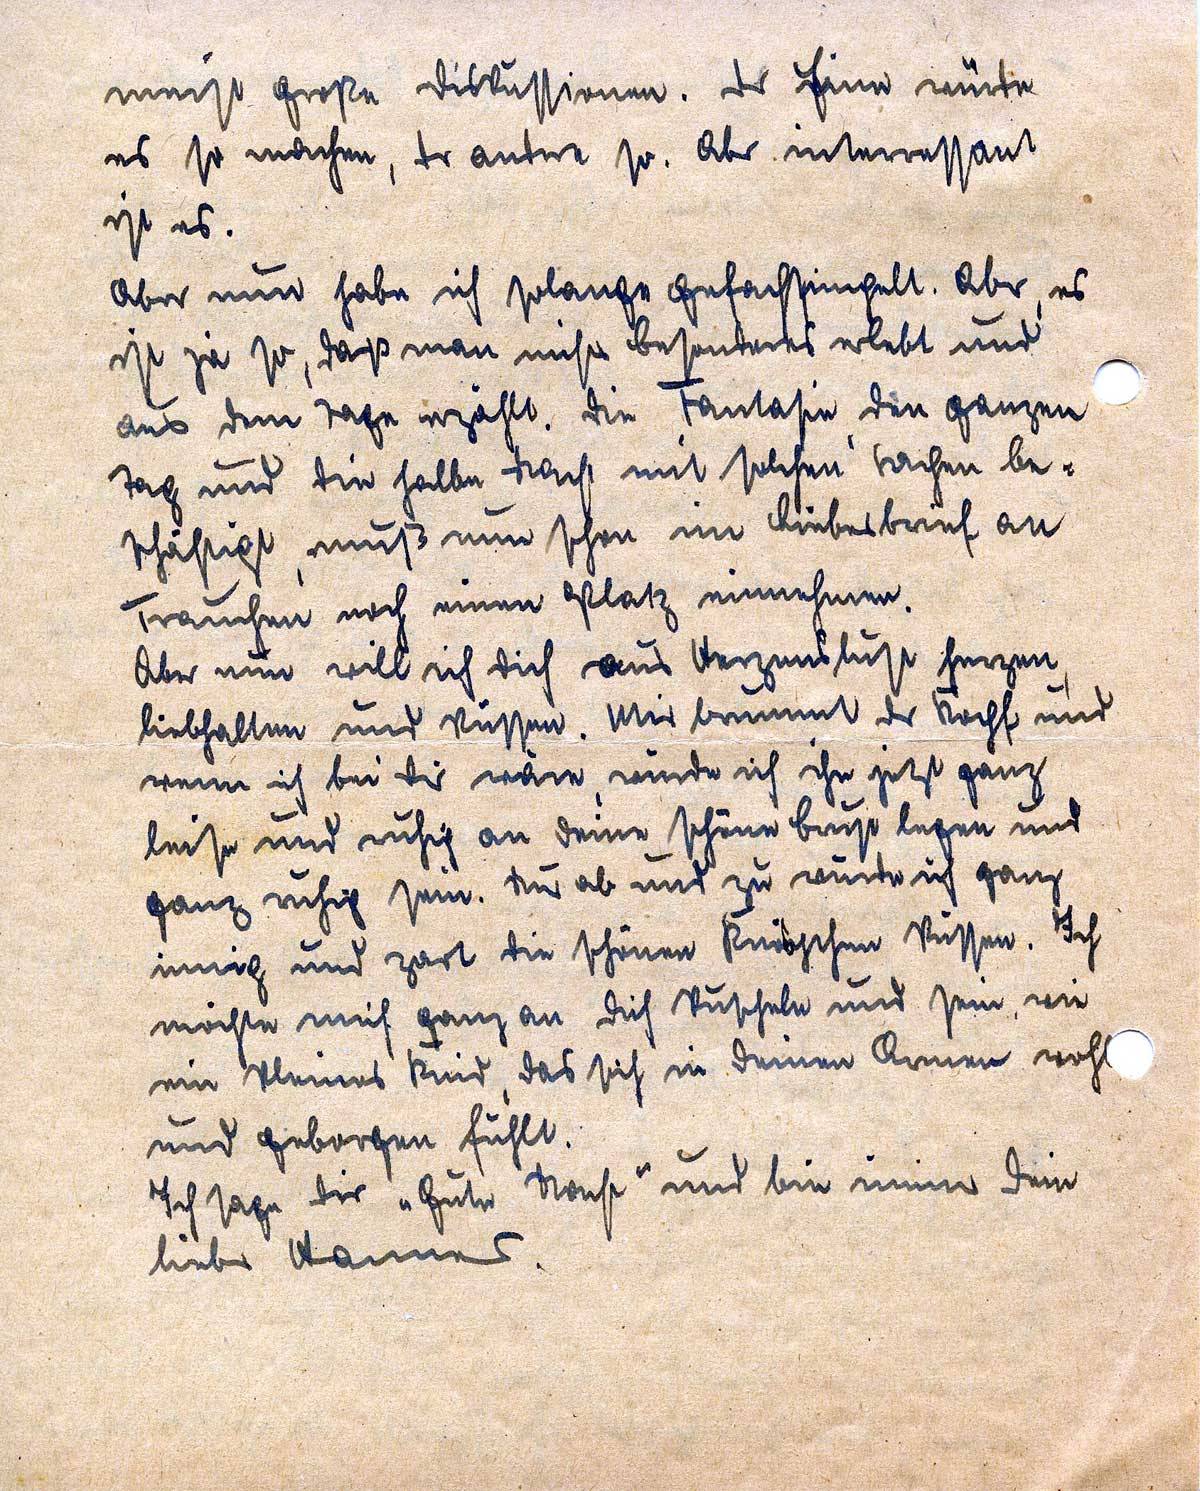 meist große Diskussionen. Der Eine würde
es so machen, der andere so. Aber interressant
ist es.
Aber nun habe ich solange gefachsimpelt. Aber es
ist ja so, daß man nichts besonderes erlebt und
aus dem Tage erzählt. Die Fantasie, den ganzen
Tag und die halbe Nacht mit solchen Sachen be-
schäftigt, muß nun schon im Liebesbrief an
Frauchen noch einen Platz einnehmen.
Aber nun will ich Dich aus Herzenslust herzen,
liebhalten und küssen. Mir brummt der Kopf und
wenn ich bei Dir wäre, würde ich ihn jetzt ganz
leise und ruhig an Deine schöne Brust legen und
ganz ruhig sein. Nur ab und zu würde ich ganz
innig und zart die schönen Knöspchen küssen. Ich
möchte mich ganz an Dich kuscheln und sein, wie
ein kleines Kind, das sich in Deinen Armen wohl
und geborgen fühlt.
Ich sage Dir „Gute Nacht" und bin immer Dein
lieber Hannes.